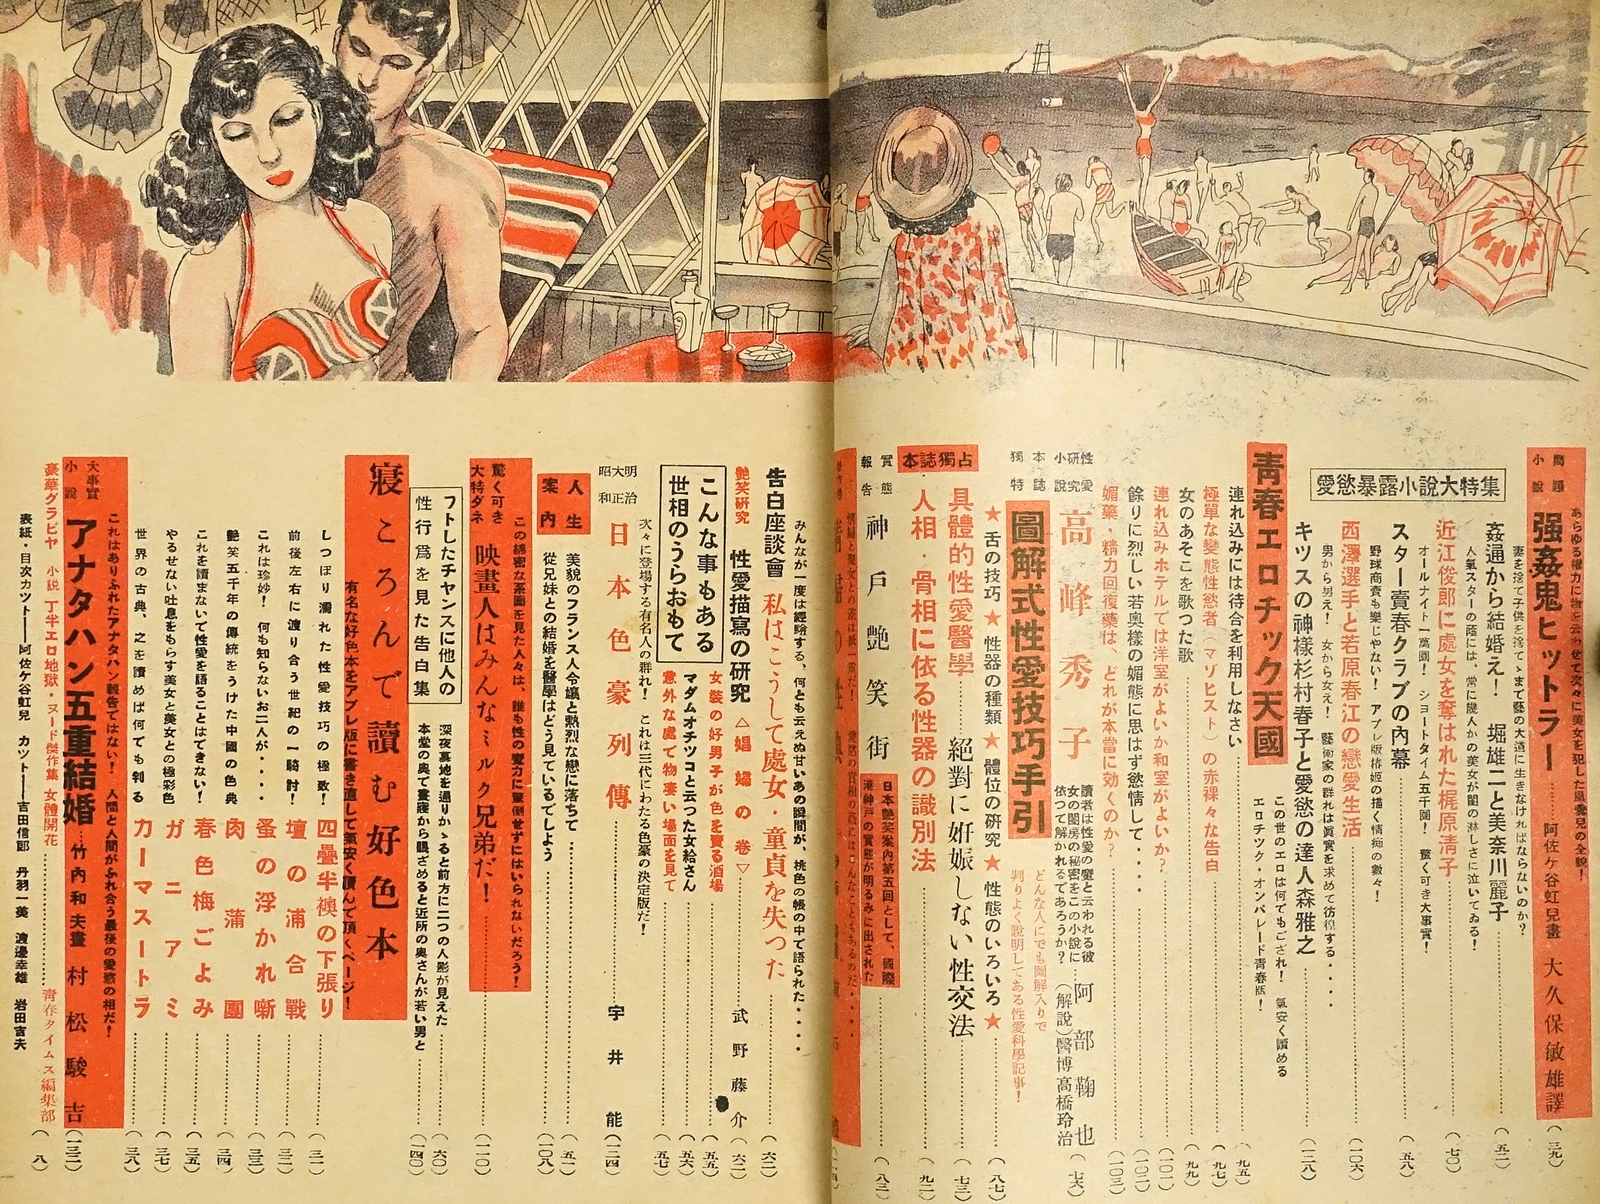 問題小説
あらゆる權力に物を云わせて次々に美女を犯した暴愛兒の全貌!
强姦鬼ヒットラー
阿佐ケ谷虹兒畫 大久保敏雄譯
(二九)
愛慾暴露小説大特集
妻を捨て子供を捨てゝまで藝の大道に生きなければならないのか?
姦通から結婚え! 堀雄二と美奈川麗子
(五一)
人氣スターの蔭には、常に幾人かの美女が閨の淋しさに泣いてゐる!
近江俊郎に處女を奪はれた梶原清子
(七〇)
オールナイト一萬圓! ショートタイム五千圓! 驚く可き大事實!
スター賣春クラブの内幕
(五八)
野球商賣も樂じやない! アプレ版椿姫の描く情痴の數々!
西澤選手と若原春江の戀愛生活
(一〇六)
男から男え! 女から女え! 藝術家の群れは眞實を求めて彷徨する・・・・
キツスの神樣杉村春子と愛慾の達人森雅之
(一二八)
青春エロチック天國
この世のエロは何でもござれ! 氣安く讀める
エロツク・オンパレード青春版!
連れ込みには待合を利用しなさい
(九五)
極單な變態性慾者(マゾヒスト)の赤裸々な告白
(九七)
女のあそこを歌つた歌
(九九)
連れ込みホテルでは洋室がよいか和室がよいか?
(一〇一)
餘りに烈しい若奥樣の媚態に思はず慾情して・・・・
(一〇二)
媚藥・精力回復藥は、どれが本當に効くのか?
(一〇三)
性愛研究小説
高峰秀子
讀者は性愛の聲と云われる彼
女の閨房の秘密をこの小説に
依つて解かれるであろうか?
阿部鞠也
(解説)醫博高橋玲治
(七六)
本誌獨特
圖解式性愛技巧手引
どんな人にでも圖解入りで
判りよく説明してある性愛科學記事!
★舌の技巧★性器の種類★體位の研究★性態のいろいろ★
(八七)
本誌獨占
具體的性愛醫學
絕對に姙娠しない性交法
(七三)
人相・骨相に依る性器の識別法
(九二)
實態報告
神戸艶笑街
日本艶笑案内第五回として、國際
港神戸の實態が明るみに出された
(八三)
みんなが一度は經驗する、何とも云えぬ甘いあの瞬間が、桃色の帳の中で語られた・・・・
告白座談會 私はこうして處女・童貞を失つた
(六二)
艶笑研究 性愛描寫の研究
武野藤介
(六二)
こんな事もある
世相のうらおもて
△娼婦の巻▽
女裝の好男子が色を賣る酒場
(五五)
マダムオチツコと云つた女給さん
(五六)
意外な處で物凄い場面を見て
(五七)
次々に登場する有名人の群れ! これは三代にわたる色豪の決定版だ!
明治大正昭和
日本色豪列傳
宇井能
(二四)
人生案内
美貌のフランス人令孃と熱烈な戀に落ちて
(五一)
從兄妹との結婚を醫學はどう見ているでしよう
(一〇八)
この綿密な素圖を見た人々は、誰も性の魔力に驚倒せずにはいられないだろう!
驚く可き大特ダネ
映畫人はみんなミルク兄弟だ!
(一一〇)
フトしたチヤンスに他人の
性行爲を見た告白集
深夜裏地を通りかゝると前方に二つの人影が見えた
(六〇)
本堂の奥で晝寢から眼ざめると近所の奥さんが若い男と
(一四〇)
寢ころんで讀む好色本
有名な好色本をアプレ版に書き直して氣安く讀んで頂くページ!
しつぽり濡れた性愛技巧の極致!
四疊半襖の下張り
(三一)
前後左右に渡り合う世紀の一騎討!
壇の浦合戰
(三二)
これは珍妙! 何も知らないお二人が・・・・
蚤の浮かれ噺
(三三)
艶笑五千年の傳統をうけた中國の色典
肉蒲團
(三四)
これを讀まないで性愛を語ることはできない!
春色梅ごよみ
(三五)
やるせない吐息をもらす美女と美女との極彩色
ガニアミ
(三七)
世界の古典、之を讀めば何でも判る
カーマスートラ
(三八)
これはありふれたアナタハン報告ではない! 人間と人間がふれ合う最後の愛慾の相だ!
大事實小説
アナタハン五重結婚
竹内和夫畫 村松駿吉
(一三二)
豪華グラビヤ 小説 丁半エロ地獄・ヌード傑作集 女體開花
青春タイムス編集部
(八)
表紙・目次カツト――阿佐ケ谷虹兒 カツト――吉田信郎 丹羽一美 渡邊幸雄 岩田吉夫